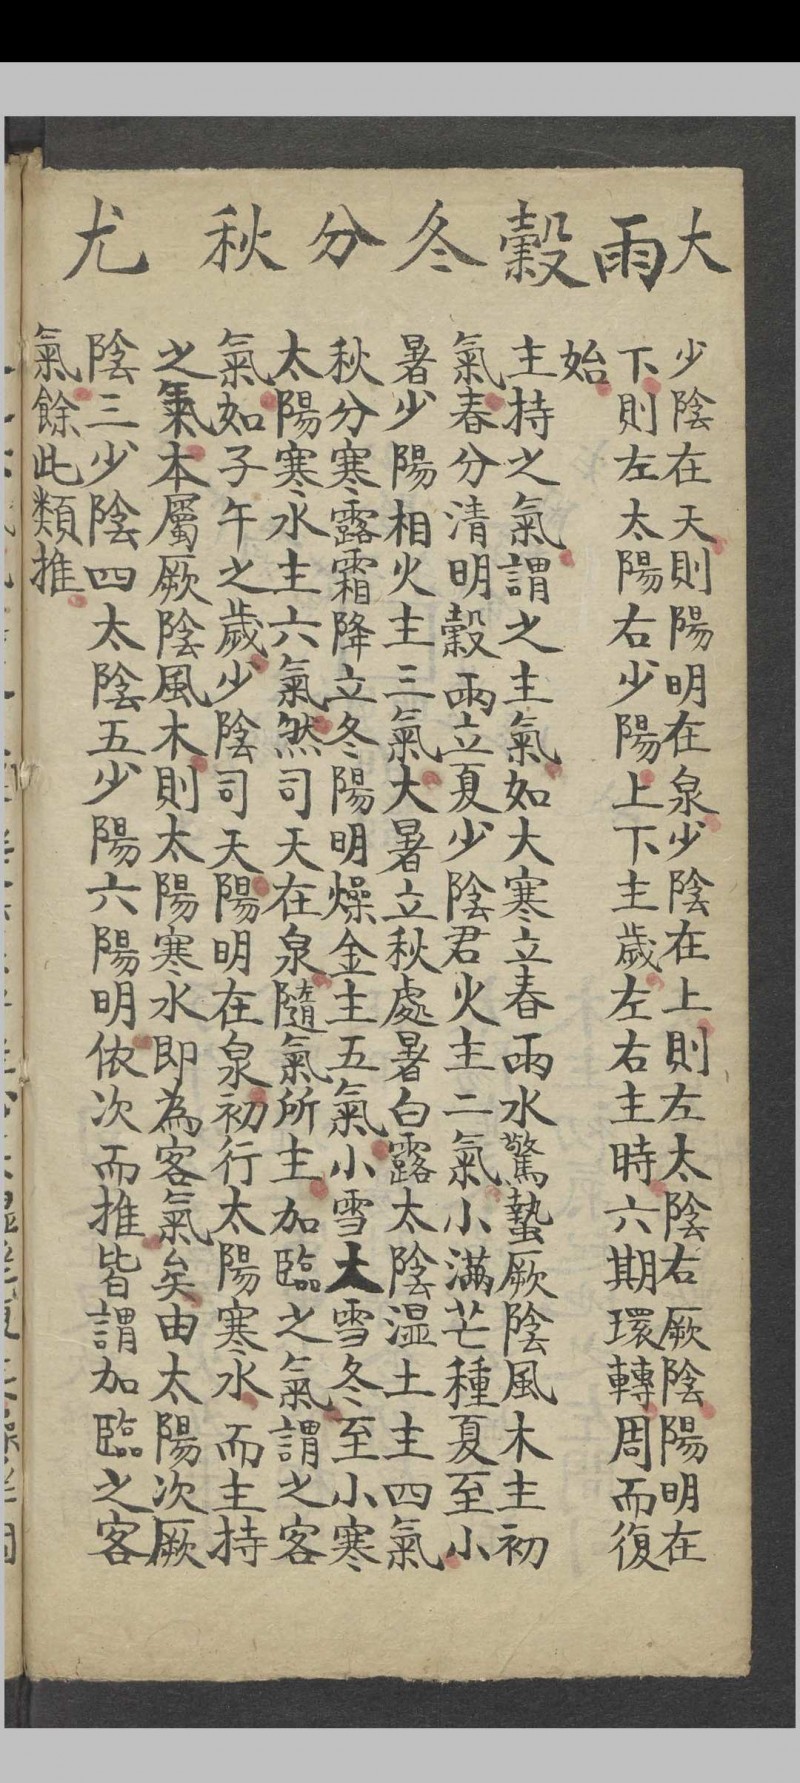 大雨穀冬分秋尤
少陰在天則陽明在泉少陰在上則左太陰右厥陰陽明在
下則左太陽右少陽上下主歲左右主時六期環轉周而復
始
主持之氣謂之主氣如大寒立春雨水驚蟄厥陰風木主初
氣春分清明穀雨立夏少陰君火主二氣小滿芒種夏至小
暑少陽相火主三氣大暑立秋處暑白露太陰湿土主四氣
秋分寒露霜降立冬陽明燥金主五氣小雪大雪冬至小寒
太陽寒水主六氣然司天在泉隨氣所主加臨之氣謂之客
氣如子午之歲少陰司天陽明在泉初行太陽寒水而主持
之氣本屬厥陰風木則太陽寒水即為客氣矣由太陽次厥
陰三少陰四太陰五少陽六陽明依次而推皆謂加臨之客
氣餘此類推